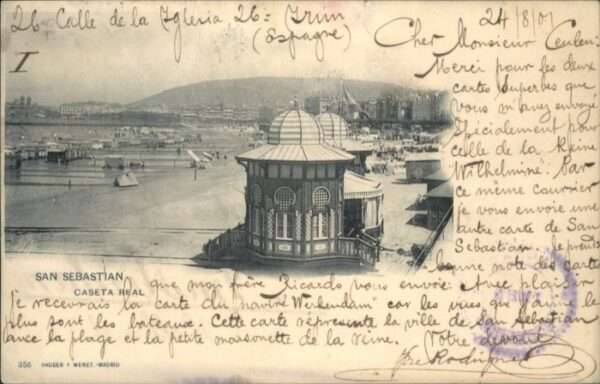 26 Calle de la Iglesia 26 = Irun
(Espagne)
I
24/8/01
Cher Monsieur Ceulen:
Merci pour les deux
cartes superbes que
vous m'avez envoyé
spécialement pour
celle de la Reine
Wilhelmine. Par
ce même courrier
je vous envoie une
autre carte de San
Sebastian. Je prends
bonne note des cartes
SAN SEBASTIAN
CASETA REAL
que mon frère Ricardo vous envoie. Avec plaisir
je recevrais la carte du navire "Werkendam" car les vues que j'aime le
plus sont les bateaux. Cette carte répresente la ville de San Sebastian
avec la plage et la petite maisonette de la reine. Votre devoué
Rodriguez
356 HAUSER Y MENET.-MADRID